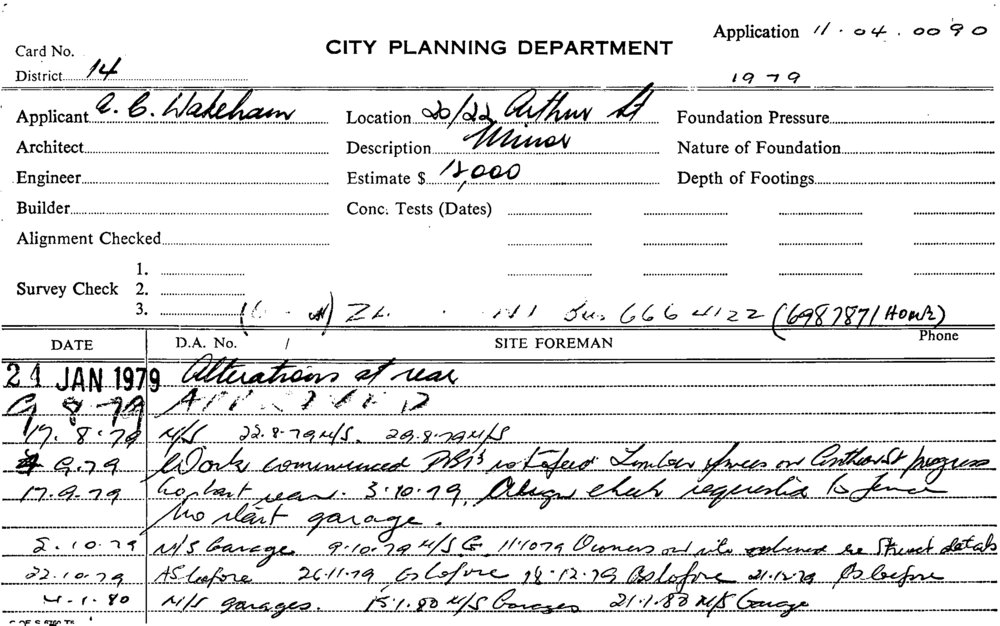 Application 11.04.0090
CITY PLANNING DEPARTMENT
Card No.
District 14
1979
Applicant A. C. Wakeham Location 20/22 Arthur St Foundation Pressure
Architect Description Minor Nature of Foundation
Engineer Estimate $ 12,000 Depth of Footings
Builder Conc. Tests (Dates)
Alignment Checked
1.
Survey Check 2.
3.
Bus 666 4122 (6987871 Home)
DATE D.A. No. / SITE FOREMAN Phone
24 JAN 1979 Alterations at rear
9 8 79 APPROVED
17.8.79 N/S 22.8.79 N/S. 29.8.79 N/S
9.79 Work commenced on Arthur St progress
17.9.79 No start rear. 3.10.79. Align check requested to fence
No start garage.
5.10.79 N/S Garage 9.10.79 N/S G 11.10.79 Owners on site re Struct details
22.10.79 As before 26.11.79 As before 18.12.79 As before 21.12.79 As before
4.1.80 N/S garages. 15.1.80 N/S Garages 21.1.80 N/S Garage